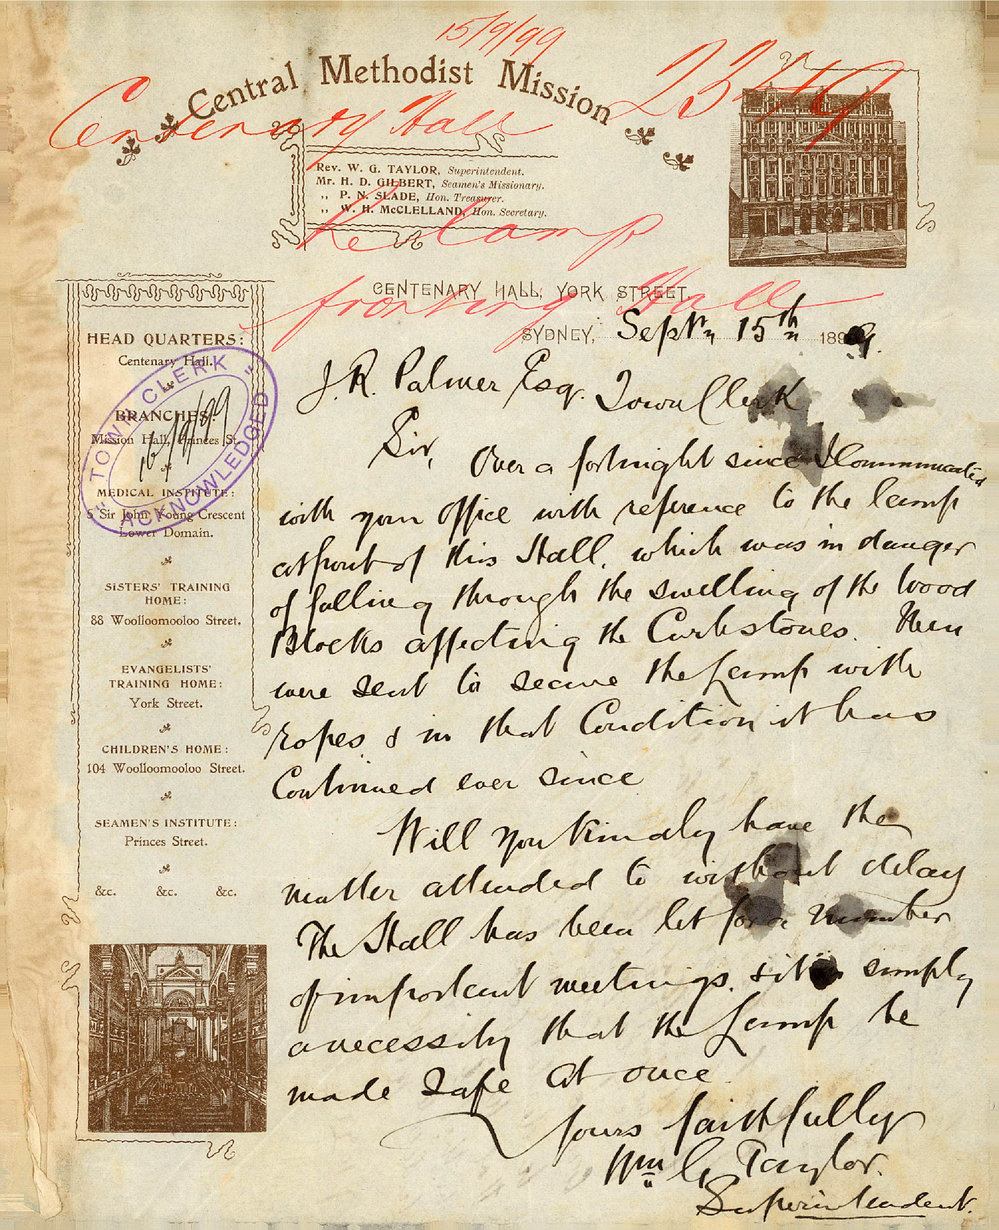 15/9/99
Central Methodist Mission
Centenary Hall
Rev. W. G. TAYLOR, Superintendent.
Mr. H. D. GILBERT, Seamen's Missionary.
„ P. N. SLADE, Hon. Treasurer.
„ W. H. McCLELLAND, Hon. Secretary.
Re Lamp
fronting Hall
CENTENARY HALL, YORK STREET,
SYDNEY, Septr 15th 1899.
HEAD QUARTERS:
Centenary Hall.
BRANCHES:
Mission Hall, Princes St.
MEDICAL INSTITUTE:
Sir John Young Crescent
Lower Domain.
SISTERS' TRAINING
HOME:
88 Woolloomooloo Street.
EVANGELISTS'
TRAINING HOME:
York Street.
CHILDREN'S HOME:
104 Woolloomooloo Street.
SEAMEN'S INSTITUTE:
Princes Street.
&c. &c. &c.
"TOWN CLERK"
16/9/99
ACKNOWLEDGED
J. R. Palmer Esq. Town Clerk
Sir,
Over a fortnight since I Communicated
with your office with reference to the lamp
at front of this Hall, which was in danger
of falling through the swelling of the Wood
Blocks affecting the Curbstones. Men
were sent to secure the Lamp with
ropes & in that Condition it has
Continued ever since
Will you kindly have the
matter attended to without delay
The Hall has been let for a number
of important meetings, & it is simply
a necessity that the Lamp be
made safe at once.
Yours faithfully
Wm G. Taylor.
Superintendent.